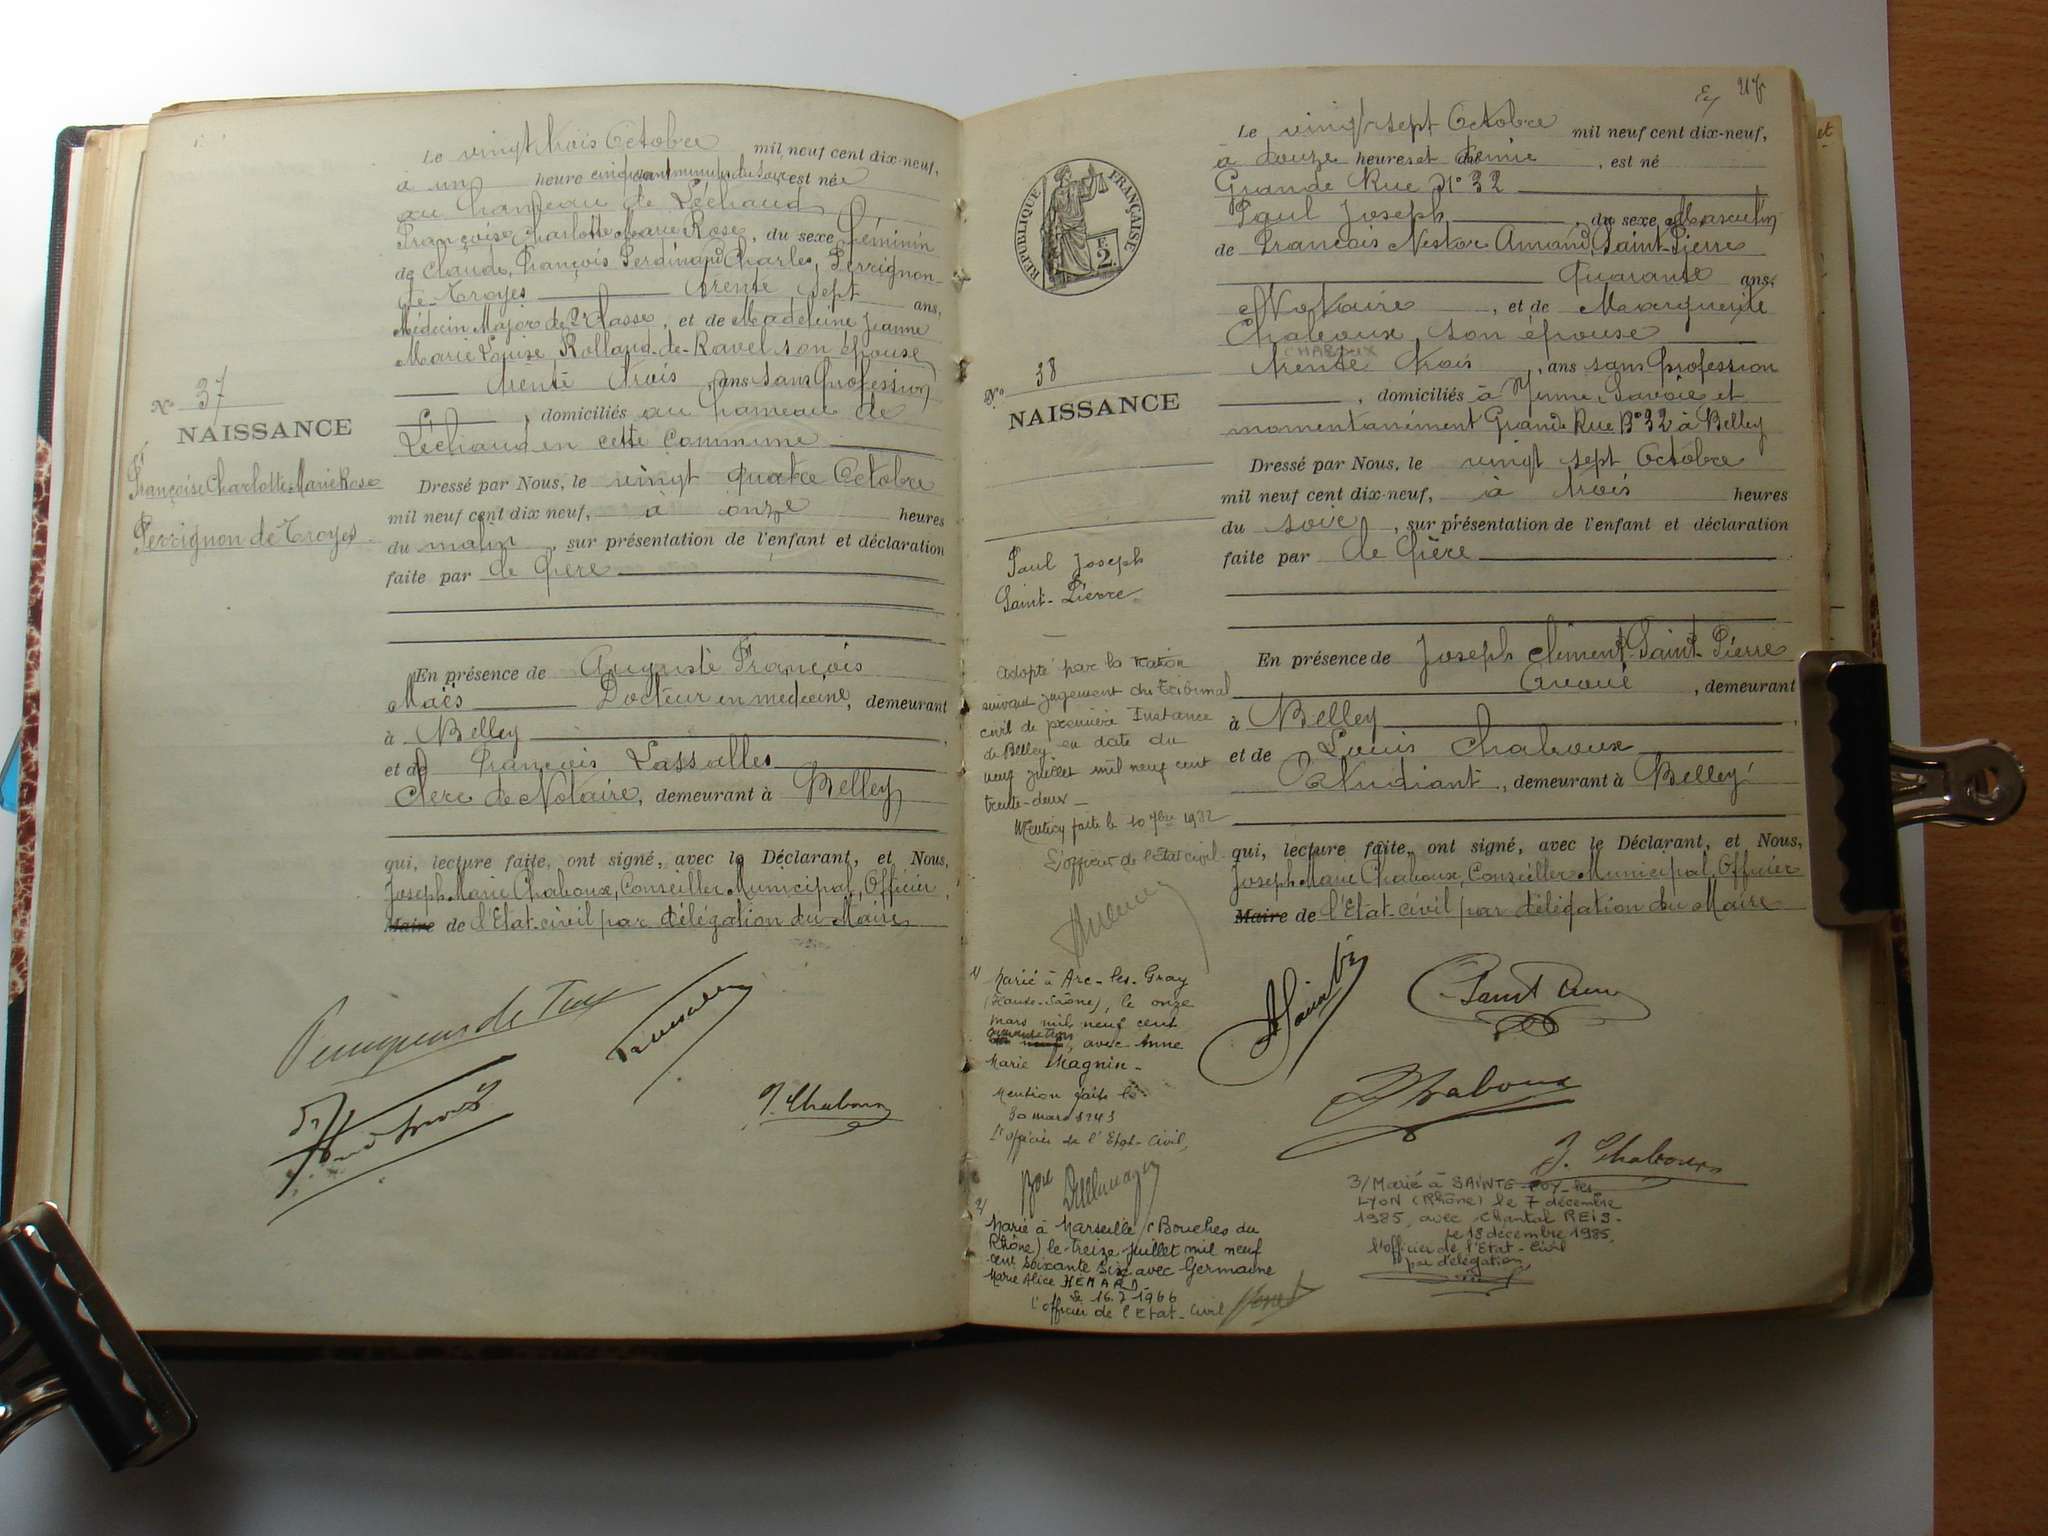 Le vingt trois Octobre mil neuf cent dix-neuf,
à un heure cinquante minutes du soir est née
au hameau de Léchaud
Françoise Charlotte Marie Rose, du sexe féminin
de Claude, François Ferdinand Charles, Perrignon-
de-Troyes trente sept ans,
Médecin Major de 2e Classe, et de Madeleine Jeanne
Marie Louise Rolland-de-Ravel son épouse
trente trois ans sans profession
, domiciliés au hameau de
Léchaud en cette commune
N° 37
NAISSANCE
Françoise Charlotte Marie Rose
Perrignon de Troyes
Dressé par Nous, le vingt quatre Octobre
mil neuf cent dix neuf, à onze heures
du matin, sur présentation de l'enfant et déclaration
faite par le Père
En présence de Auguste François
Maës Docteur en médecine, demeurant
à Belley
et de François Lassalles
Clerc de Notaire, demeurant à Belley
qui, lecture faite, ont signé, avec le Déclarant, et Nous,
Joseph Marie Chaboux, Conseiller Municipal, Officier
Maire de l'Etat-civil par délégation du Maire
J. Chaboux
Le vingt sept Octobre mil neuf cent dix-neuf,
à douze heures et demie, est né
Grande Rue N° 32
Paul Joseph, du sexe Masculin
de François Nestor Amand Saint-Pierre
Quarante ans,
Notaire, et de Marguerite
Chaboux, son épouse
CHABOUX
trente trois, ans sans profession
, domiciliés à Yenne Savoie et
momentanément Grande Rue N° 32 à Belley
RÉPUBLIQUE FRANÇAISE
F. 2.
N° 38
NAISSANCE
Paul Joseph
Saint-Pierre
Dressé par Nous, le vingt sept Octobre
mil neuf cent dix-neuf, à trois heures
du soir, sur présentation de l'enfant et déclaration
faite par le Père
En présence de Joseph Clément Saint-Pierre
Avoué, demeurant
à Belley,
et de Louis Chaboux
Etudiant, demeurant à Belley
qui, lecture faite, ont signé, avec le Déclarant, et Nous,
Joseph Marie Chaboux, Conseiller Municipal, Officier
Maire de l'Etat-civil par délégation du Maire
Adopté par la Nation
suivant jugement du Tribunal
civil de première Instance
de Belley en date du
neuf juillet mil neuf cent
trente-deux
Mention faite le 10 7bre 1932
L'officier de l'Etat civil
1/ Marié à Arc-les-Gray
(Haute-Saône), le onze
mars mil neuf cent
avec Anne
Marie Magnin
Mention faite le
30 mars 1943
L'officier de l'Etat-Civil,
2/
Marié à Marseille (Bouches du
Rhône) le treize juillet mil neuf
cent soixante six avec Germaine
Marie Alice HEMARD
Le 16.7.1966
L'officier de l'Etat-Civil
Chaboux
J. Chaboux
3/ Marié à SAINTE-FOY-les-
LYON (Rhône) le 7 décembre
1985, avec Chantal REIS.
Le 18 décembre 1985,
l'officier de l'Etat-Civil
par délégation